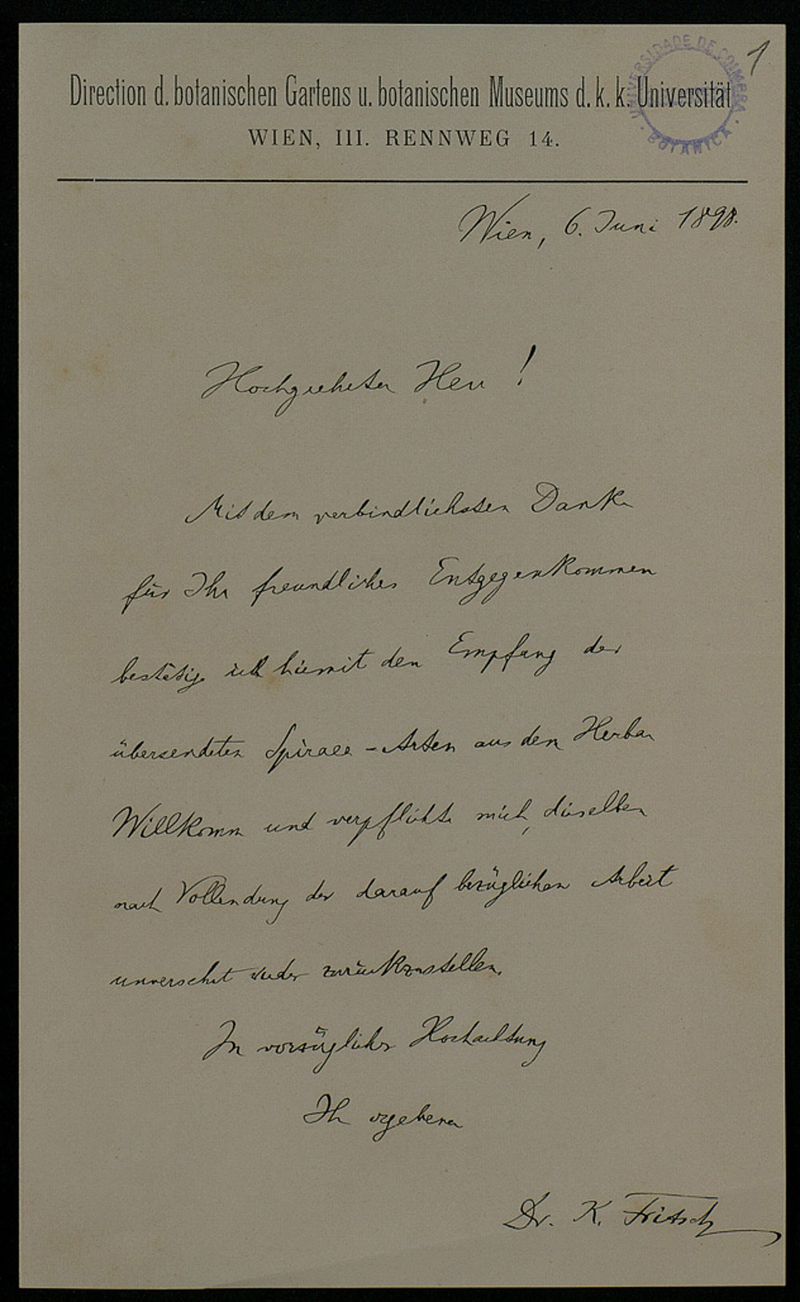 1
UNIVERSIDADE DE COIMBRA · BOTANICA ·
Direction d. botanischen Gartens u. botanischen Museums d. k. k. Universität
WIEN, III. RENNWEG 14.
Wien, 6. Juni 1898.
Hochgeehrter Herr !
Mit dem verbindlichsten Danke
für Ihr freundliches Entgegenkommen
bestätige ich hiemit den Empfang der
übersendeten Spiraea-Arten aus dem Herbar
Willkomm und verpflichte mich, dieselben
nach Vollendung der darauf bezüglichen Arbeit
unversehrt wieder zurückzustellen.
In vorzüglicher Hochachtung
Ihr ergebener
Dr. K. Fritsch